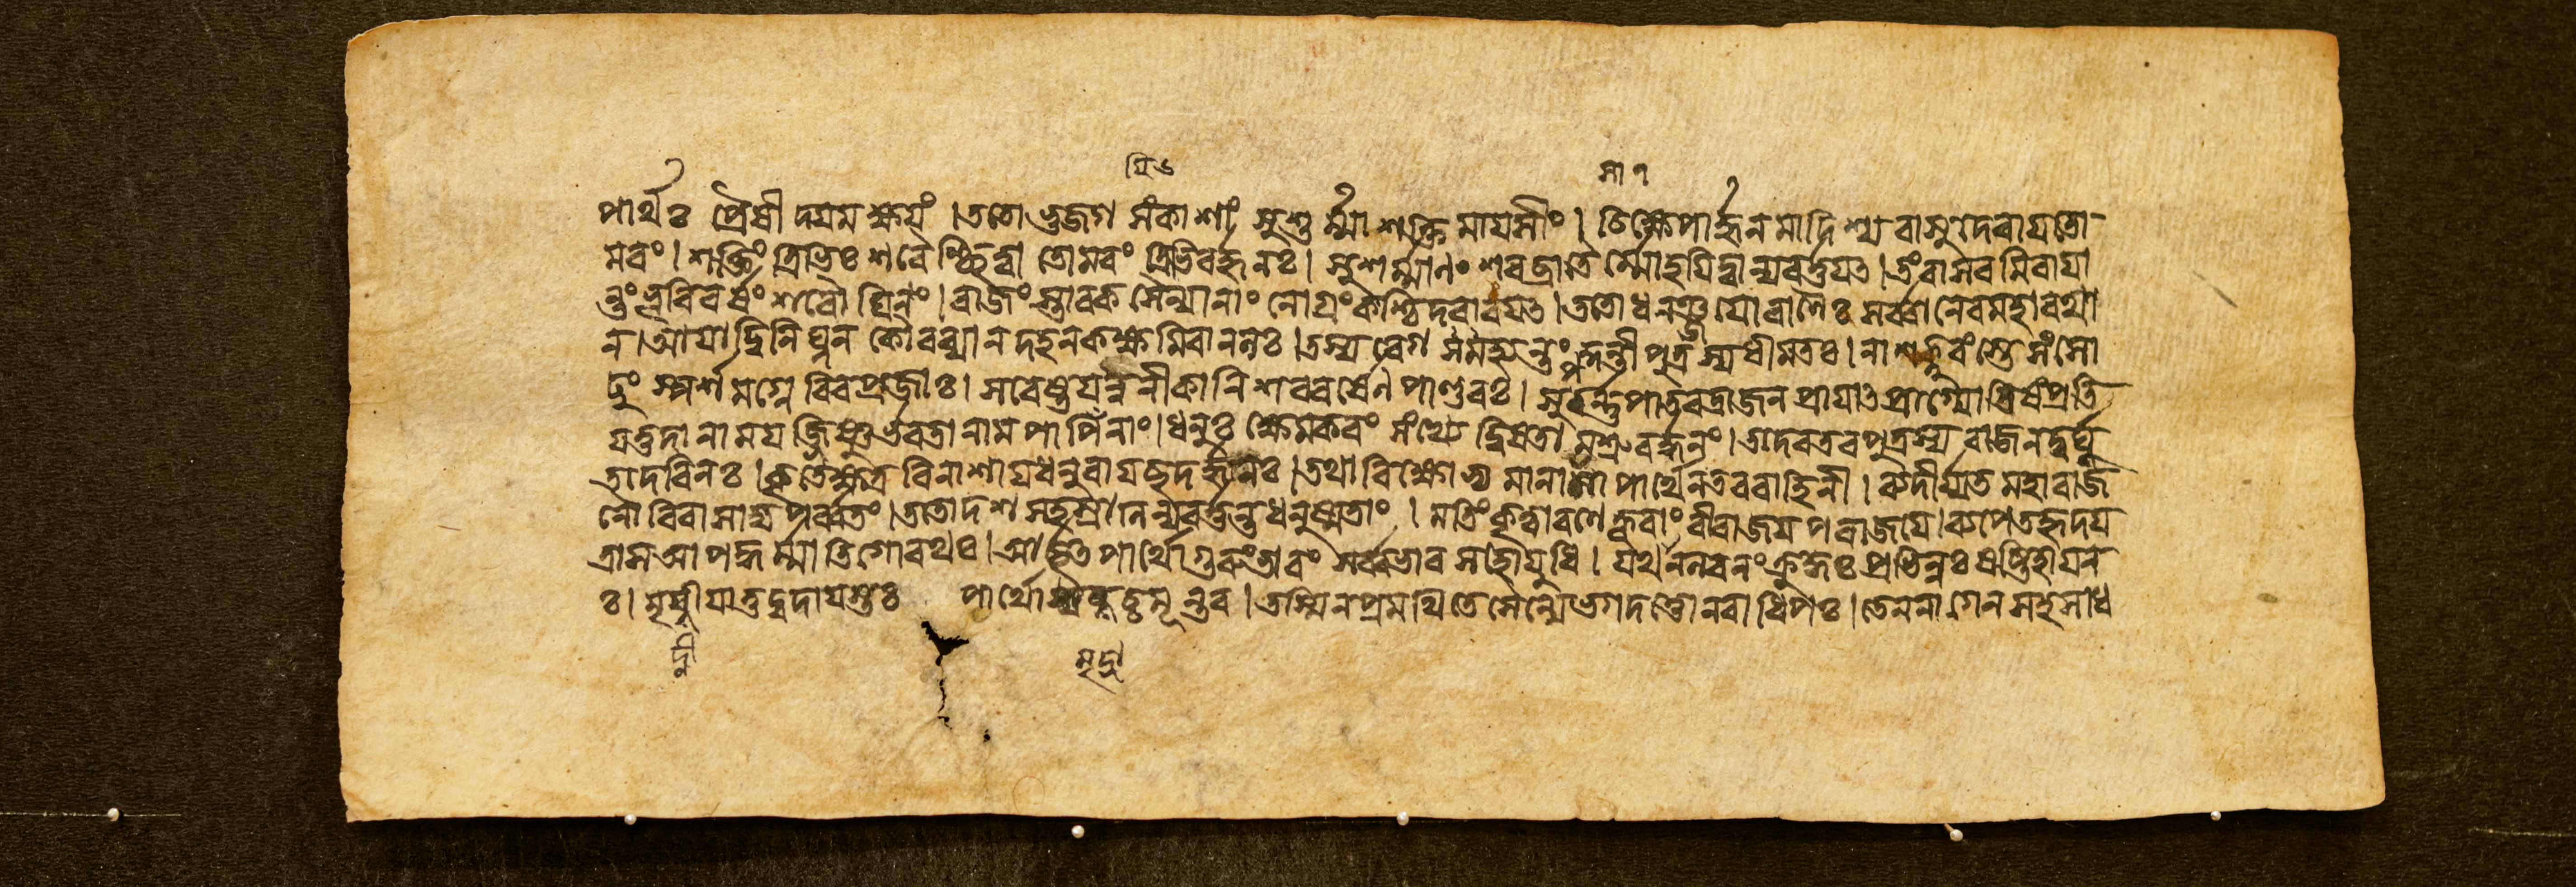 ষি৬ সা ৭
পার্থঃ প্রৈষীদ্যমক্ষয়ং ।ততো ভুজগসংকাশাং সুশর্ম্মা শক্তিমায়সীং। চিক্ষেপার্জ্জুনমাদিশ্য বাসুদেবায় তো
মরং। শক্তিং ত্রিভিঃ শরৈশ্ছিত্বা তোমরং ত্রিভিরর্জ্জুনঃ। সুশর্ম্মানং শরব্রাতৈর্ম্মোহয়িত্বা ন্যবর্ত্তয়ত। তং বাসবমিবায়া
ন্তং ভূরিবর্ষং শরৌঘিনং। রাজংস্তাবকসৈন্যানাং নোগ্রং কশ্চিদবারয়ত। ততো ধনঞ্জয়ো বাণৈঃ সর্ব্বানেব মহারথা
ন। আয়াদ্বিনিঘ্নন কৌরব্যান দহন কক্ষমিবানলঃ। তস্য বেগমসহ্যন্তং কুন্তীপুত্রস্য ধীমতঃ। নাশক্নুবংস্তে সংসো
ঢুং স্পর্শমগ্নেরিব প্রজাঃ। সংবেষ্টয়ন্ননীকানি শরবর্ষেণ পাণ্ডবঃ। সুপর্ণপাতবদ্রাজন প্রায়াত প্রাগ্জ্যোতিষং প্রতি
যত্তদানাময়জ্জিষ্ণুর্ভরতানামপাপিনাং। ধনুঃ ক্ষেমকরং সংখ্যে দ্বিষতামশ্রুবর্দ্ধনং। তদেব তব পুত্রস্য রাজন দুর্দ্যূ
তদেবিনঃ। কৃতে ক্ষত্রবিনাশায় ধনুরায়চ্ছদর্জ্জুনঃ। তথা বিক্ষোভ্যমানা সা পার্থেন তব বাহিনী। ব্যদীর্য্যত মহারাজ
নৌরিবাসাদ্য পর্ব্বতং। ততো দশ সহস্রানি ন্যবর্ত্তন্ত ধনুষ্মতাং । মতিং কৃত্বা রণে ক্রূরাং বীরা জয়পরাজয়ে। ব্যপেতহৃদয়
ত্রাস আপদ্ধর্ম্মাতিগো রথঃ। আর্চ্ছত পার্থো গুরুং ভারং সর্ব্বভারসহো যুধি। যথা নলবনং ক্রুদ্ধঃ প্রভিন্নঃ ষষ্টিহায়ন
ঃ। মৃদ্নীয়াত্তদ্বদায়স্তঃ পার্থো চমূন্তব। তস্মিন প্রমথিতে সৈন্যে ভগদত্তো নরাধিপঃ। তেন নাগেন সহসা ধ
দ্নী মৃদ্না